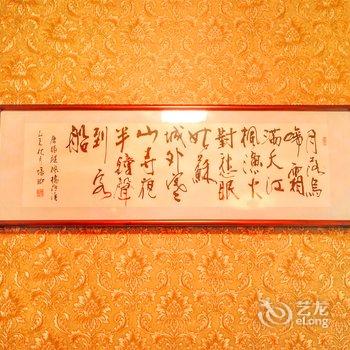 月落烏
啼霜
滿天江
楓漁火
對愁眠
姑蘇
城外寒
山寺夜
半鐘聲
到客
船
唐張繼楓橋夜泊
艺龙
eLong